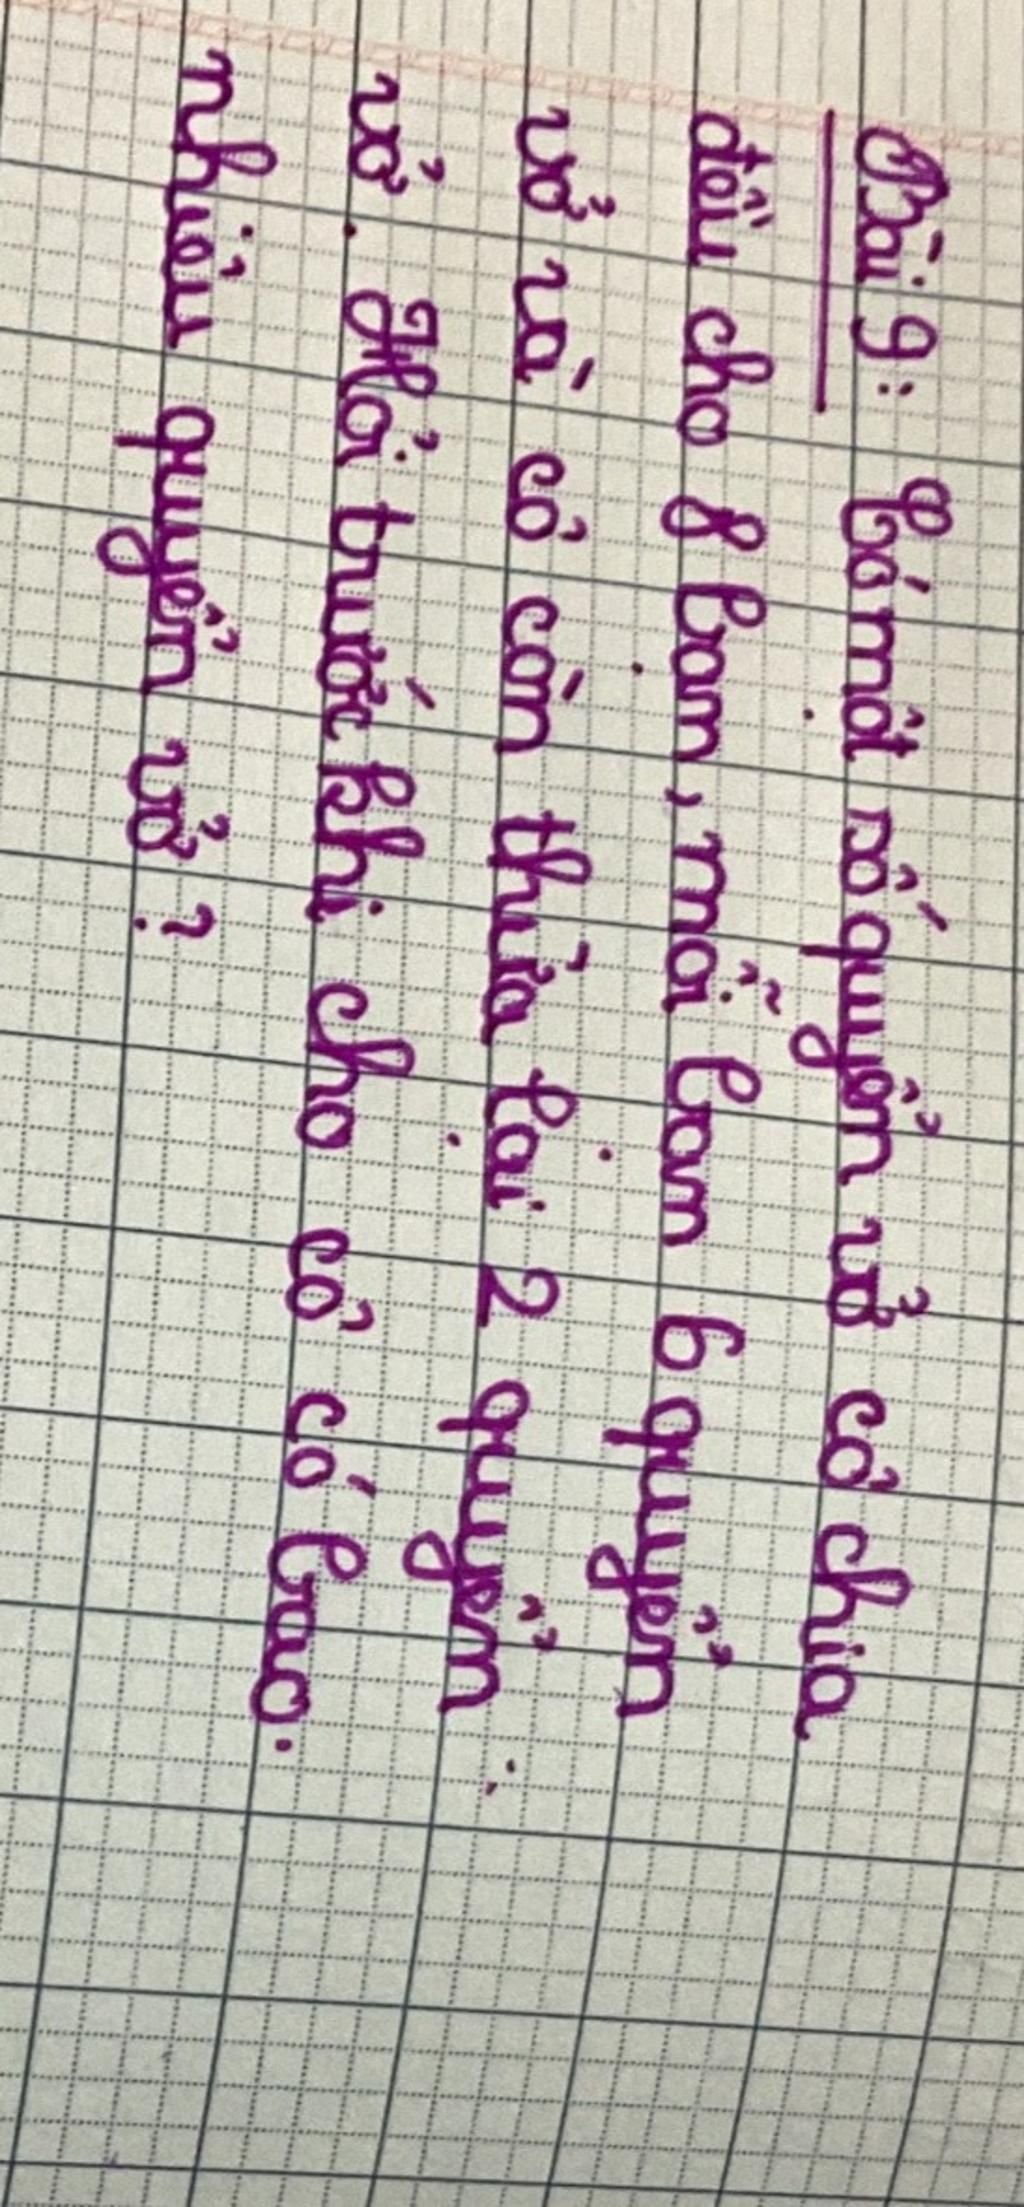 Bài 9: Có một số quyển vở cô chia
đều cho 8 bạn, mỗi bạn 6 quyển
vở và cô còn thừa lại 2 quyển
vở. Hỏi trước khi cho cô có bao
nhiêu quyển vở?